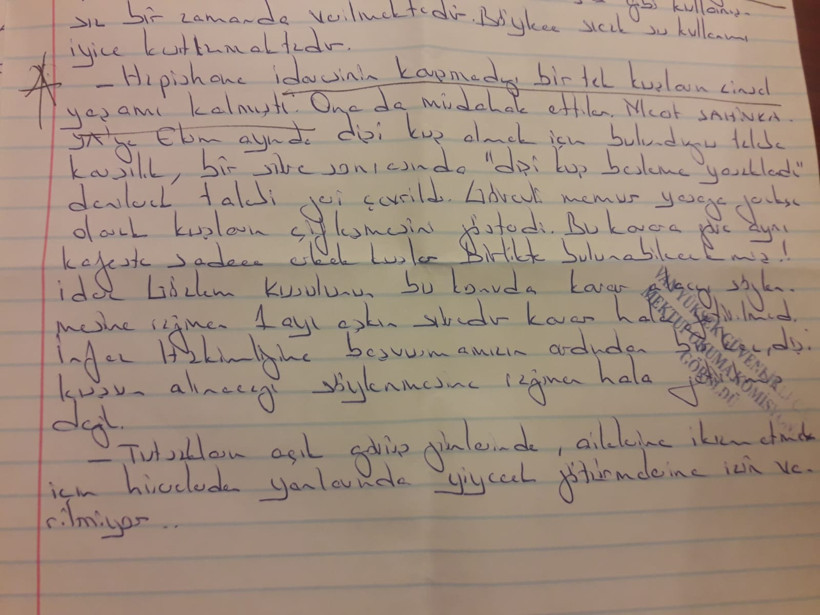 gibi kullanıl-
sız bir zamanda verilmektedir. Böylece sıcak su kullanımı
iyice kısıtlanmaktadır.
- Hapishane idaresinin karışmadığı bir tek kuşların cinsel
yaşamı kalmıştı. Ona da müdahale ettiler. Mesut ŞAHİNKA-
YA'ya Ekim ayında dişi kuş almak için bulunduğu talebe
karşılık, bir süre sonrasında "dişi kuş besleme yasakladı"
denilerek talebi geri çevrildi. Görevli memur yasağa gerekçe
olarak kuşların çiftleşmesini gösterdi. Bu karara göre aynı
kafeste sadece erkek kuşlar birlikte bulunabilecekmiş!
İdare Gözlem Kurulunun bu konuda karar alacağı söylen-
mesine rağmen 1 ayı aşkın süredir karar hala verilmedi.
İnfaz Hakimliğine başvurumuzın ardından dişi
kuşun alınacağı söylenmesine rağmen hala
değil.
- Tutsakların açık görüş günlerinde, ailelerine ikram etmek
için hücreden yanlarında yiyecek götürmelerine izin ve-
rilmiyor..
YÜKSEK GÜVENLİKLİ
MEKTUP OKUMA KOMİSYONU
GÖRÜLDÜ